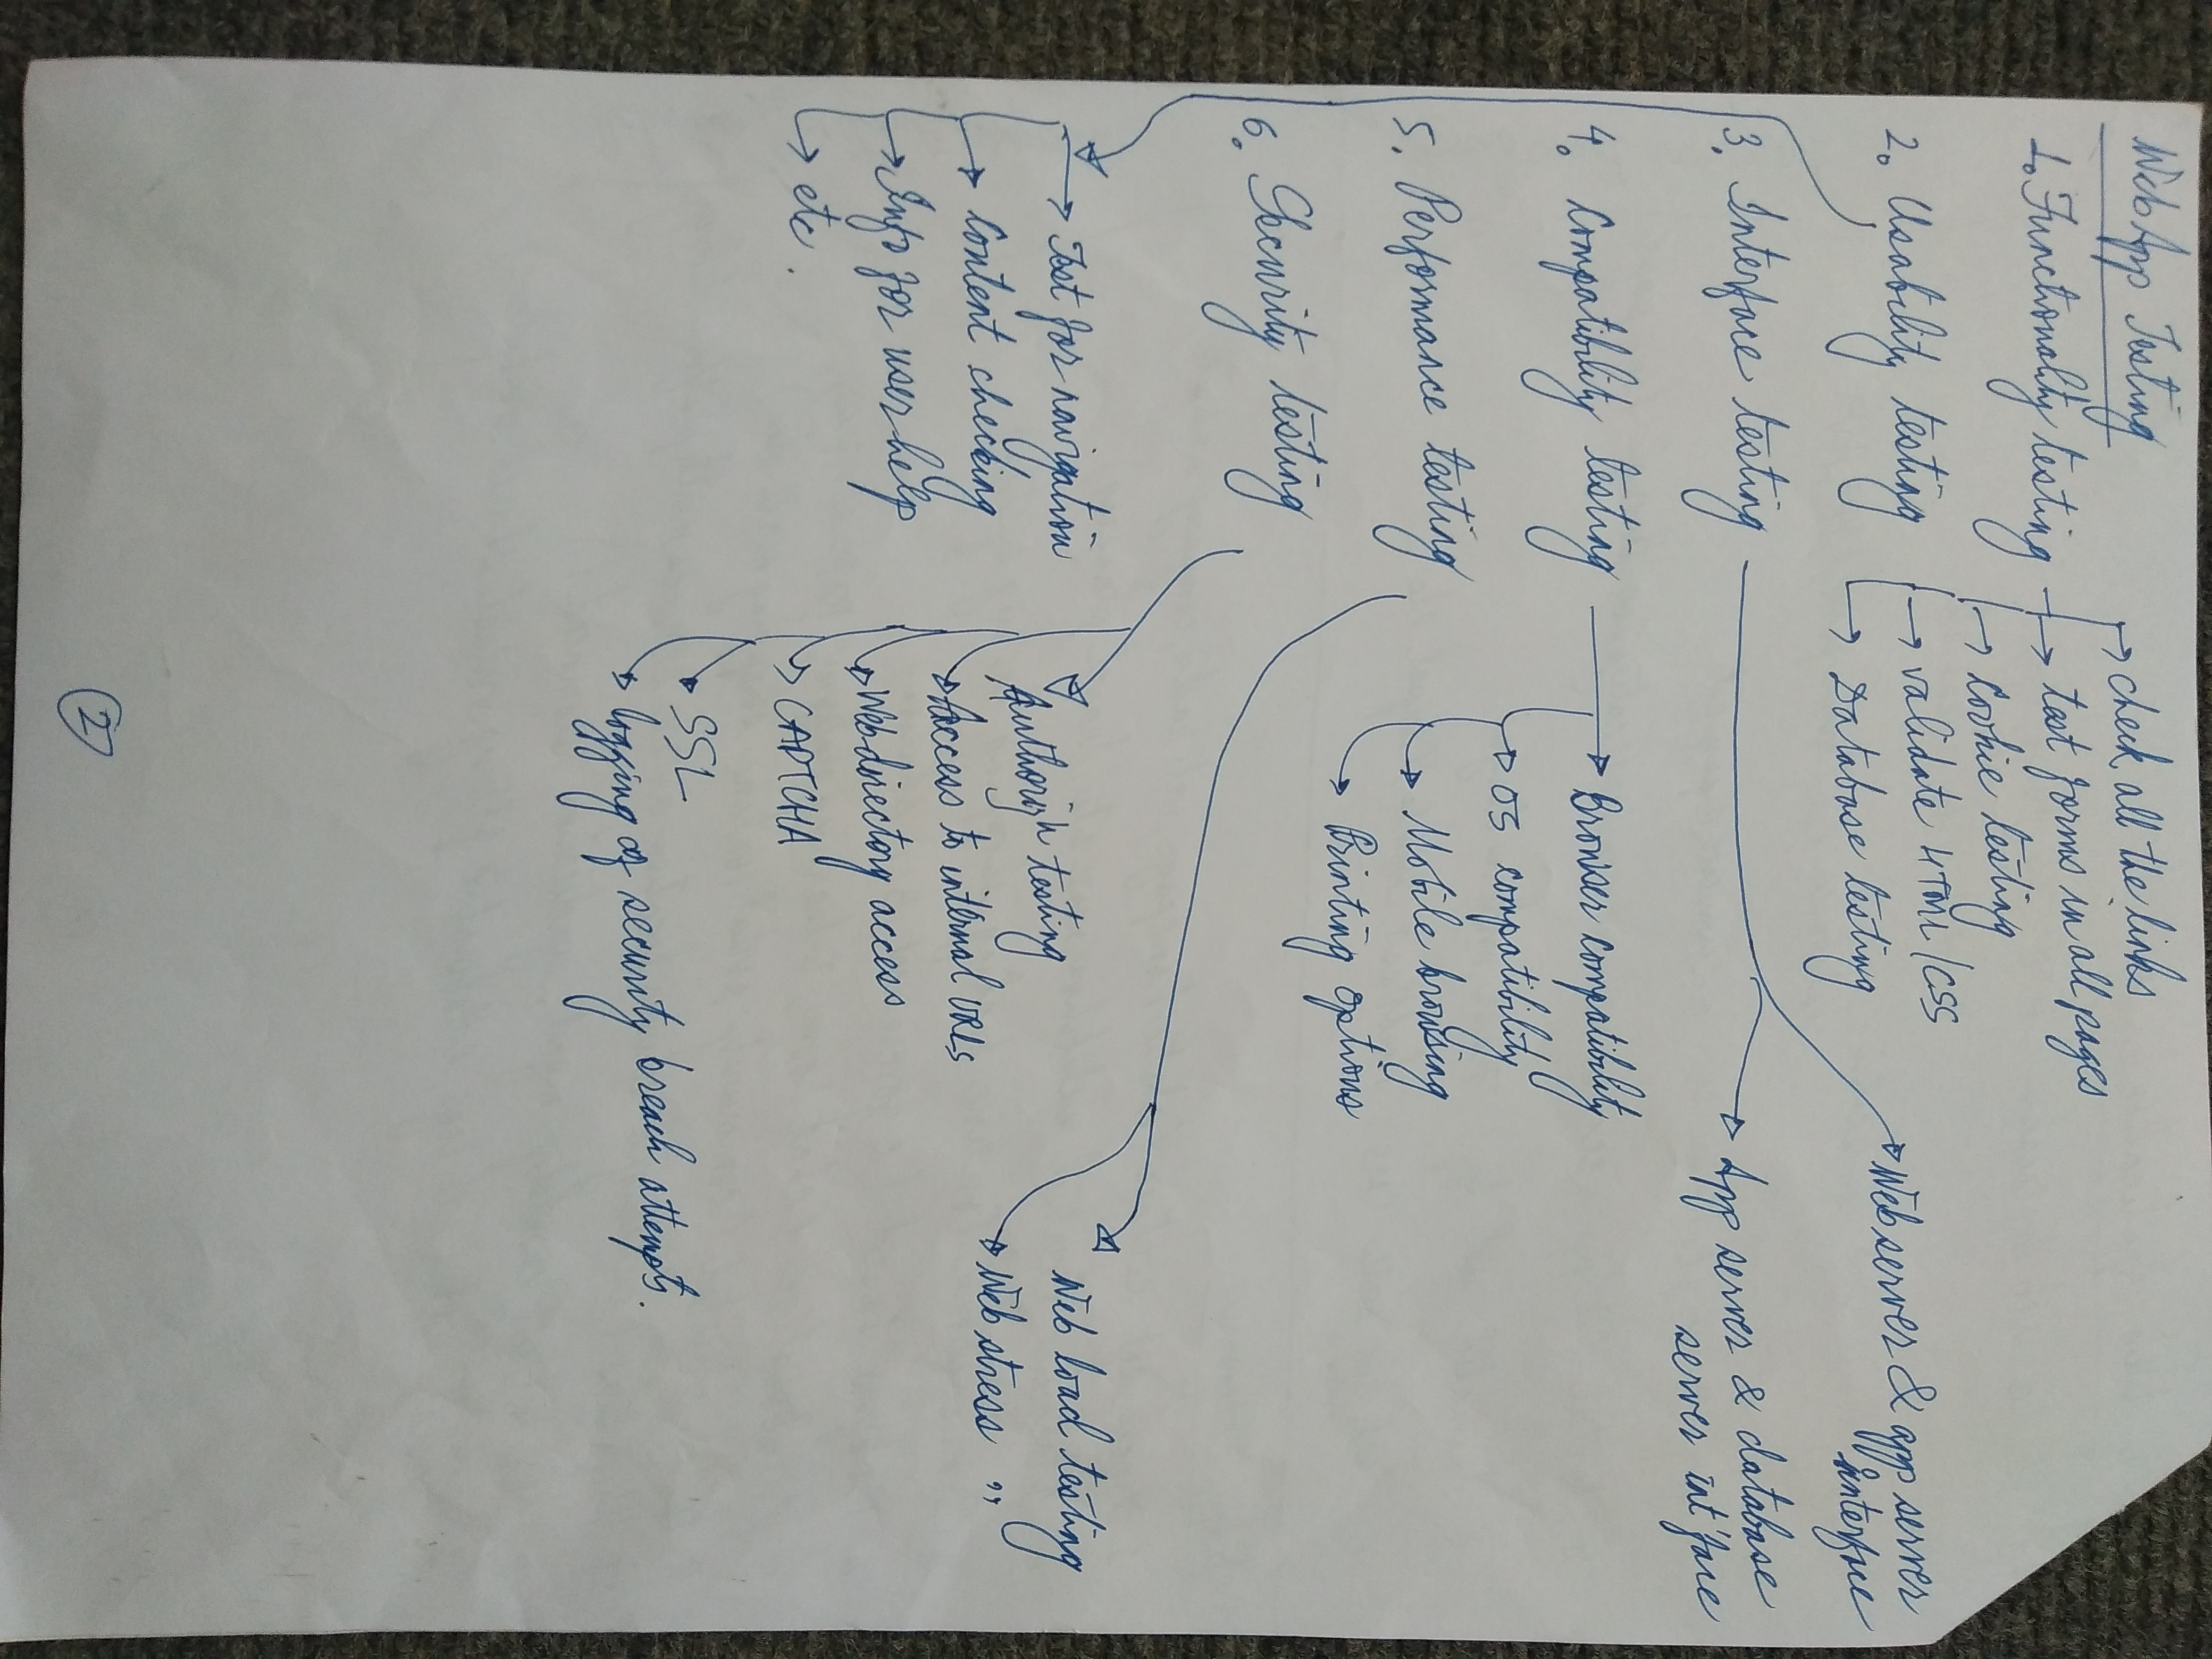 Web App Testing
1. Functionality testing → check all the links
→ test forms in all pages
→ Cookie testing
→ validate HTML/CSS
→ Database testing
2. Usability testing
3. Interface testing
→ Web server & app server
interface
→ App server & database
server int'face
4. Compatibility testing
→ Browser compatibility
→ OS compatibility
→ Mobile browsing
→ Printing options
5. Performance testing
→ Web load testing
→ Web stress "
6. Security testing
→ Test for navigation
→ Content checking
→ Info for user help
→ etc.
testing
→ Access to internal URLs
→ Web directory access
→ CAPTCHA
→ SSL
→ logging of security breach attempts.
2